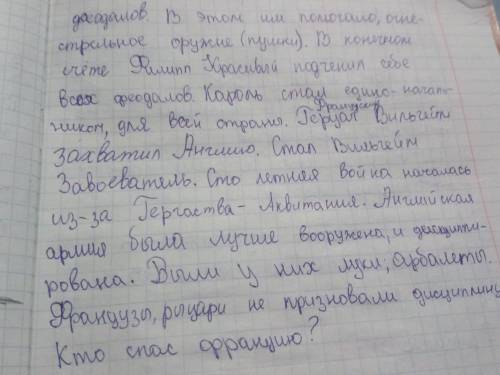 феодалов. В этом им помогало, огне-
стрельное оружие (пушки). В конечном
счёте Филипп Красивый подчинил себе
всех феодалов. Король стал едино-началь-
ником, для всей страны. Герцог Французский Вильгейм
захватил Англию. Стал Вильгейм
Завоеватель. Сто летняя война началась
из-за Гергаства - Аквитания. Английская
армия была лучше вооружена, и дисципли-
рована. Были у них луки, арбалеты.
Французы, рыцари не признавали дисциплину
Кто спас францию?